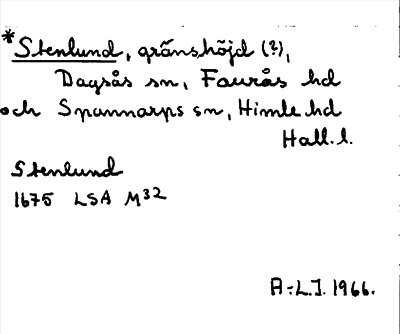 *Stenlund, gränshöjd (?),
Dagsås sn, Faurås hd
och Spannarps sn, Himle hd
Hall. l.
Stenlund
1675 LSA M32
A-L.J. 1966.